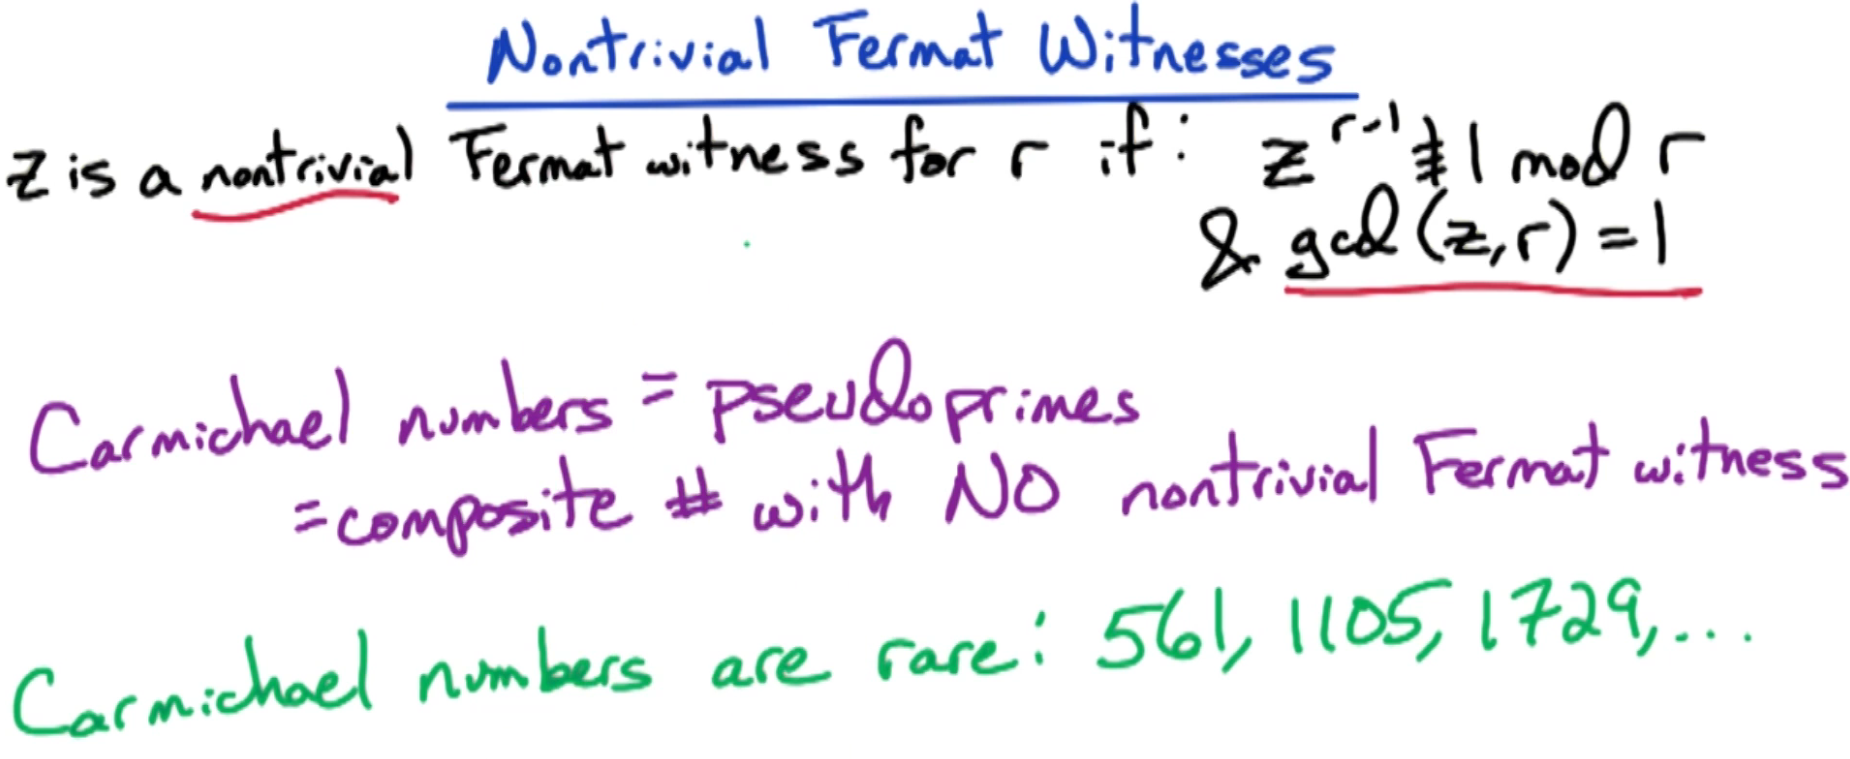 Nontrivial Fermat Witnesses
z is a nontrivial Fermat witness for r if: z^{r-1} ≢ 1 mod r
& gcd(z,r) = 1
Carmichael numbers = pseudoprimes
= composite # with NO nontrivial Fermat witness
Carmichael numbers are rare: 561, 1105, 1729, ...